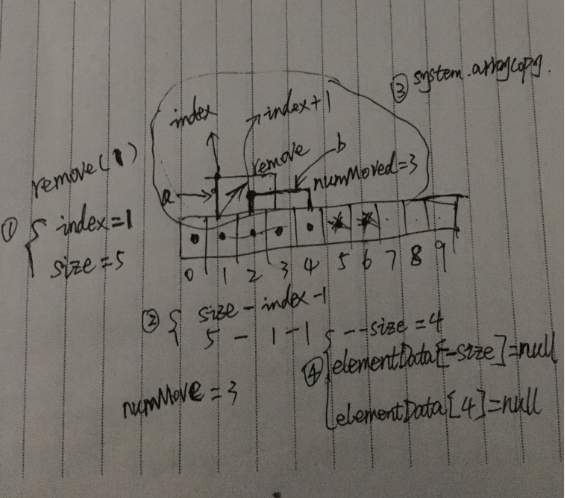 ③ system.arraycopy.
index
index+1
remove(1)
remove
b
a
numMoved=3
① { index=1
size=5
0 1 2 3 4 5 6 7 8 9
② { size-index-1
5-1-1
--size=4
④ elementData[--size]=null
numMove=3
elementData[4]=null